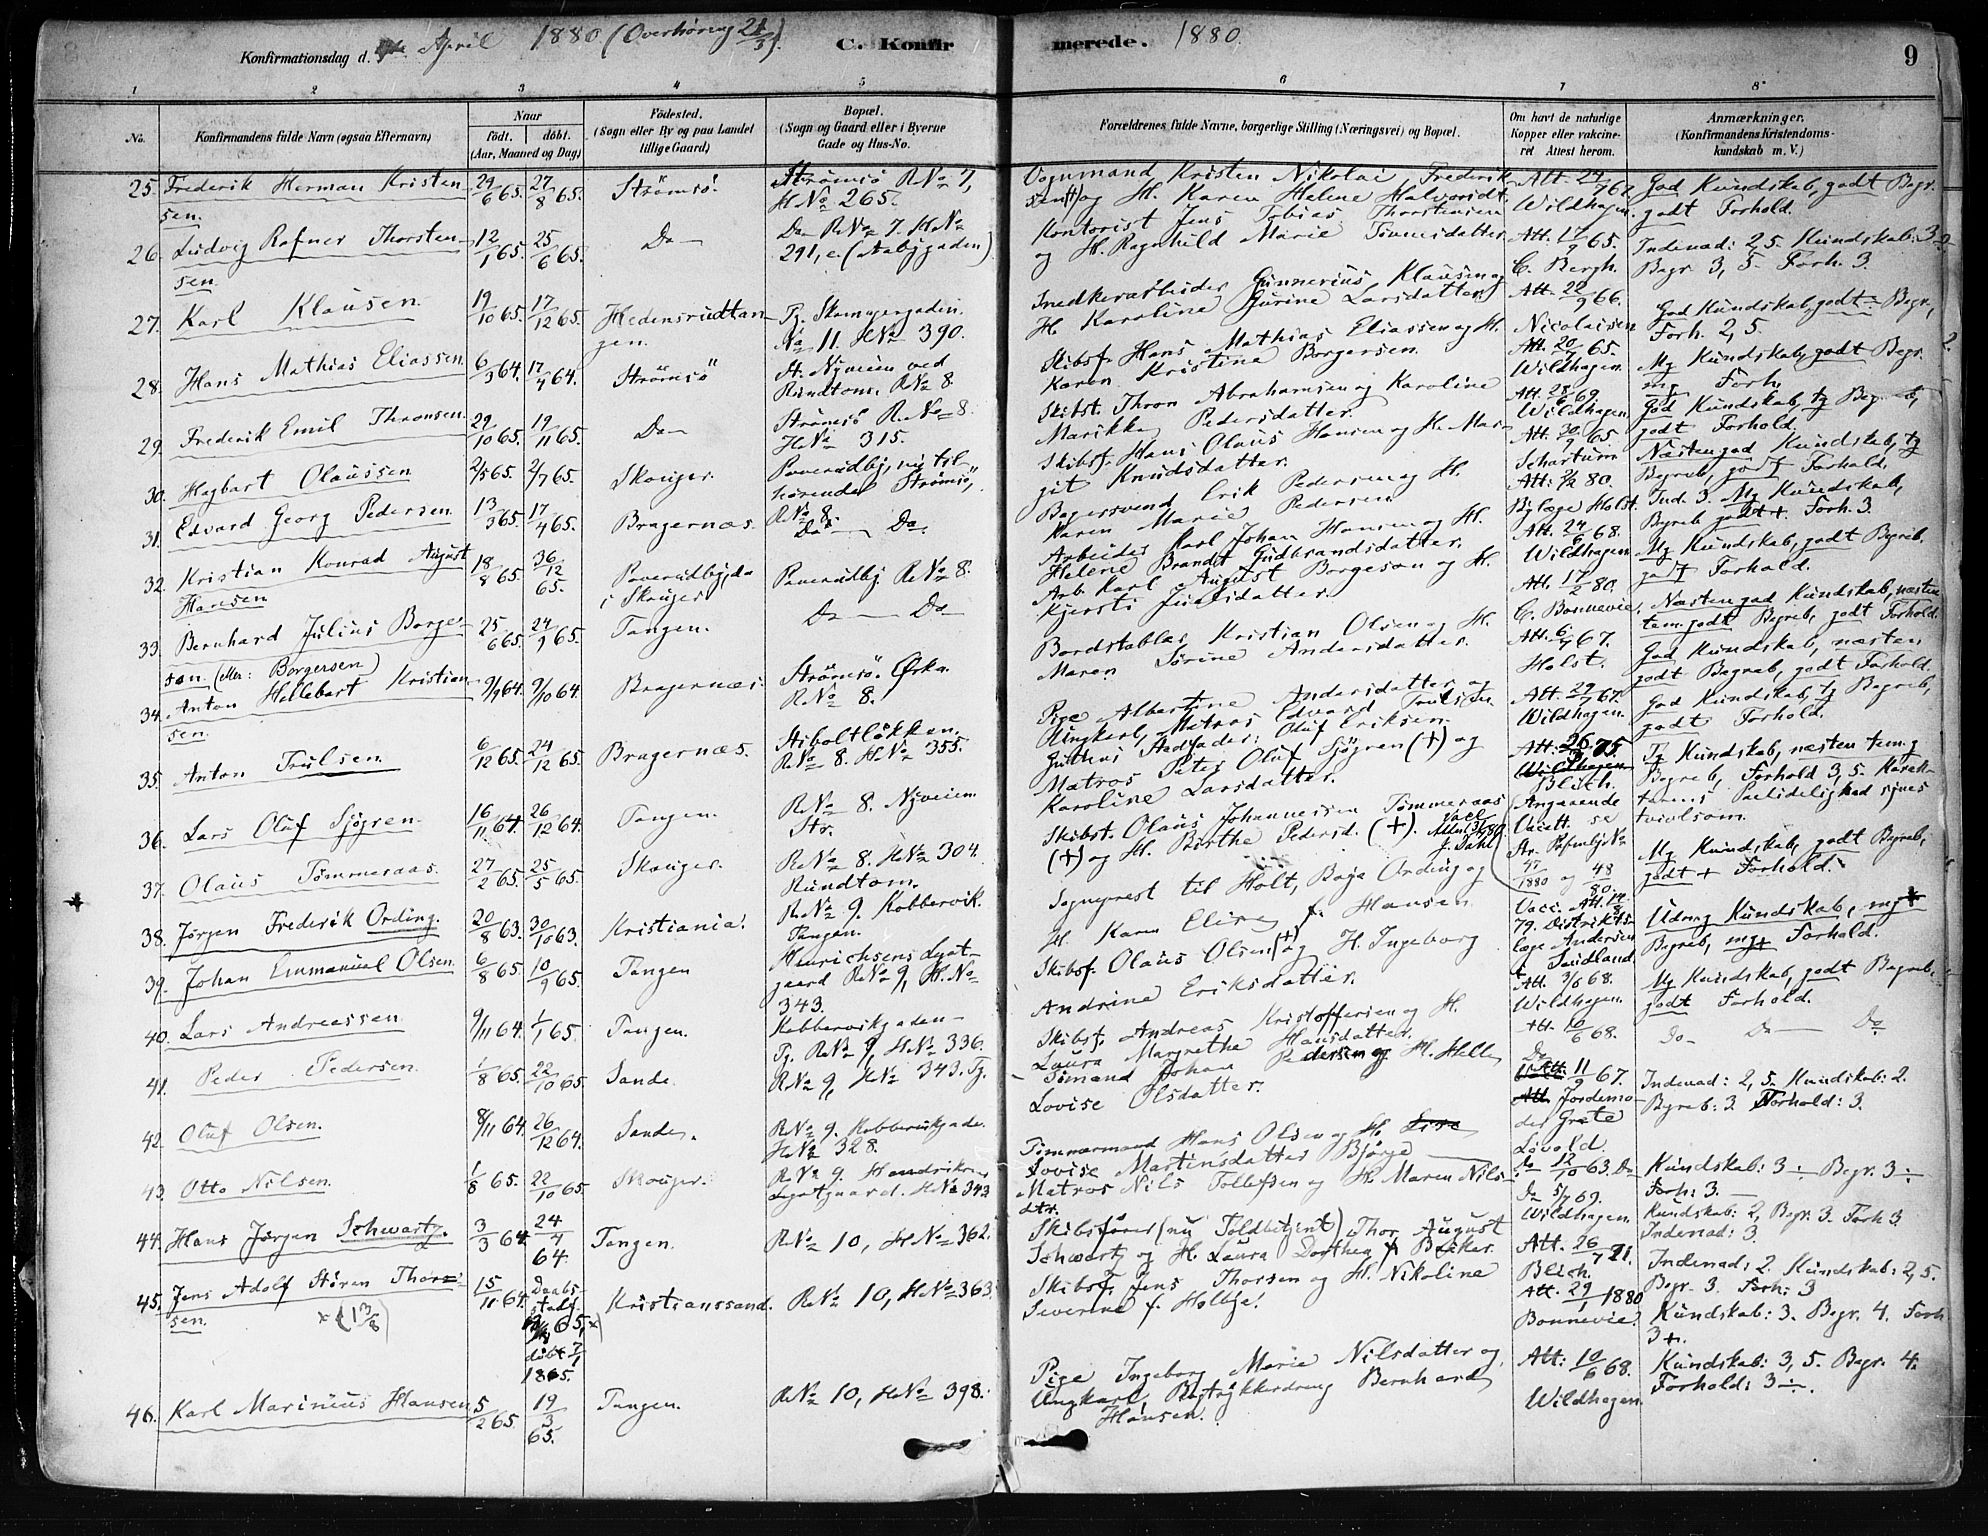 Konfirmationsdag d. April 1880 (Overhøring 21/3).
C. Konfirmerede. 1880.
9
1 2 3 4 5 6 7 8
No.
Konfirmandens fulde Navn (ogsaa Efternavn)
Naar
født. døbt.
(Aar, Maaned og Dag)
Födested.
(Sogn eller By og paa Landet tillige Gaard)
Bopæl.
(Sogn og Gaard eller i Byerne Gade og Hus-No.
Forældrenes fulde Navne, borgerlige Stilling (Næringsvei) og Bopæl.
Om havt de naturlige Kopper eller vakcineret Attest herom.
Anmærkninger.
(Konfirmandens Kristendomskundskab m. V.)
25. Frederik Herman Kristensen 29/6 65. 27/8 65. Strömsö. Strömsö R No 7, H No 265. Vognmand Kristen Nikolai Frederiksen (+) og H. Karen Helene Halvorsdt. Att. 24/7 67. Wildhagen. God Kundskab, godt Begr. godt Forhold.
26. Ludvig Rafner Thorstensen 12/1 65. 25/6 65. Do Do R No 7. H No 291, e. (Aabygaden) Kontorist Jens Tobias Thorstensen og H. Ragnhild Marie Tønnesdatter Att. 17/9 65. C. Bergh. Indenad: 2,5. Kundskab: 3. Begr. 3,5. Forh. 3.
27. Karl Klausen 19/10 65. 17/12 65. Hedensrudtangen. Tg. Skomagergaden. No 11. H No 390. Snedkerarbeider Gunnerius Klausen og H. Karoline Gurine Larsdatter. Att. 22/9 66. Nicolaisen God Kundskab, godt Begr, Forh. 2,5.
28. Hans Mathias Eliassen 6/3 64. 17/4 64. Strömsö St. Nyveien ved Rundtom. R No 8. Skibsf. Hans Mathias Eliassen og H. Karen Kristine Borgersen. Att. 20/7 65. Wildhagen. Mg Kundskab, godt Begr. mg Forh.
29. Frederik Emil Thronsen. 29/10 65. 19/11 65. Do Strömsö R No 8. H No 315. Skibst. Thron Abrahamsen og Karoline Marikka Pedersdatter. Att. 28/6 69. Wildhagen God Kundskab, tg Begreb, godt Forhold.
30. Hagbart Olaussen 2/5 65. 2/7 65. Skouger. Paverudbj, nu tilhørende Strömsö, R No 8. Skibsf. Hans Olaus Hansen og H. Margit Knudsdatter. Att. 30/9 65 Schartum Næsten god Kundskab, tg Begreb, godt Forhold.
31. Edvard Georg Pedersen 13/3 65. 17/4 65. Bragernæs. Do Do. Bagersvend Erik Pedersen og H. Karen Marie Pedersen Att. 2/2 80. Bylæge Holst Ind. 3. Mg Kundskab, Begreb godt +. Forh. 3.
32. Kristian Konrad August Hansen 18/8 65. 36/12 65. Paverudbj, da i Skouger Paverudbj R No 8. Arbeider Karl Johan Hansen og H. Helene Brandt Gudbrandsdatter. Att. 24/6 68. Wildhagen Mg Kundskab, godt Begreb, godt Forhold.
33. Bernhard Julius Borgeson (eller: Borgersen) 25/6 65. 24/9 65. Tangen. Do Do Arb. Karl August Borgeson og H. Kjersti Juelsdatter. Att. 17/2 80. C. Bonnevie. Næsten god Kundskab, næsten tem. godt Begreb, godt Forhold.
34. Anton Hellebart Kristiansen. 9/9 64. 9/10 64. Bragernæs. Strömsö. Ørka. R No 8. Bordstabler Kristian Olsen og H. Maren Sørine Andersdatter. Att. 6/7 67. Holst. God Kundskab, næsten godt Begreb, godt Forhold.
35. Anton Trulsen. 6/12 65. 24/12 65. Bragernæs. Aiboltløkken. R No 8. H No 355. Pige Albertine Andersdatter og Ungkarl, Matros Edvard Trulsen. Guttens Stedfader: Oluf Eriksen. Att. 29/7 67. Wildhagen. God Kundskab, tg Begreb, godt Forhold.
36. Lars Oluf Sjögren. 16/11 64. 26/12 64. Tangen. R No 8. Nyveien Str. Matros Peter Oluf Sjögren (+) og Karoline Larsdatter. Att. 26/7 75 Wildhagen Blich. Tg Kundskab, næsten tem. g Begreb, Forhold 3,5. Karakterens Paalidelighed synes tvivlsom.
37. Olaus Tømmeraas. 27/2 65. 25/5 65. Skouger. R No 8. H No 304. Rundtom. Skibst. Olaus Johannessen Tømmeraas (+) og H. Birthe Pedersd. (+). Angaaende Vaccatt. se 47/1880 og 48/80. Mg Kundskab, godt Begreb, godt + Forhold.
38. Jørgen Frederik Ording. 20/8 63. 30/10 63. Kristiania. R No 9. Kobbervik. Tangen. Sogneprest til Holt, Boje Ording og H. Karen Elise f. Hansen. Vacc. Att. 79. Distriktslæge Andersen Sandland. Udm. g Kundskab, mg+ Begreb, mg+ Forhold.
39. Johan Emmanuel Olsen. 6/8 65. 10/9 65. Tangen Henrichsens Legatgaard R No 9, H. No 343. Skibsf. Olaus Olsen (+) og H. Ingeborg Andrine Eriksdatter. Att. 3/6 68. Wildhagen. Mg Kundskab, godt Begreb. godt Forhold.
40. Lars Andreassen 9/11 64. 1/1 65. Tangen. Kobbervikgaden Tg. R No 9, H No 336. Skibsf. Andreas Kristoffersen og H. Laura Margrethe Hansdatter. Att. 10/6 68. Do Do Do Do
41. Peder Pedersen. 1/8 65. 22/10 65. Sande. R No 9, H No 343. Tg. Sømand Johan Pedersen og H. Helle Lovise Olsdatter. Att. 11/9 67. Jordemoder Grete Lövold Indenad: 2,5. Kundskab: 2. Begreb: 3. Forhold: 3.
42. Oluf Olsen. 8/11 64. 26/12 64. Sande. R No 9. Kobbervikgade. H No 328. Tømmermand Hans Olsen og H. Lise Lovise Martinsdatter Bjørge Do 12/10 63. Do Kundskab: 3 Begr. 3 Forh: 3.
43. Otto Nilsen. 1/8 65. 22/10 65. Skouger. R No 9. Hendriksens Legatgaard. H No 343 Matros Nils Tollefsen og H. Maren Nilsdtr. Do 5/7 69. Wildhagen. Kundskab: 2, Begr: 3. Forh 3. Indenad: 3.
44. Hans Jørgen Schwartz. 3/3 64 24/4 64. Tangen. R No 10, H No 362. Skibsfører (nu Toldbetjent) Thor August Schwartz og H. Laura Dorthea f. Becker. Att. 26/7 71. Blich. Indenad: 2. Kundskab: 2,5. Begr. 3. Forh: 3
45. Jens Adolf Støren Thorssen. 15/11 64. Daabstalf. 65, døbt 7/1 1865. Kristianssand. R No 10, H No 363. Skibsf. Jens Thorsen og H. Nikoline Severine f. Holbye. Att. 29/1 1880 Bonnevie. Kundskab: 3. Begr. 4. Forh 3+.
46. Karl Marinius Hansen 5/2 65. 19/3 65. Tangen. R No 10, H No 398. Pige Ingeborg Marie Nilsdatter og Ungkarl, Bogtrykkerdreng Bernhard Hansen. Att: 10/6 68. Wildhagen. Kundskab: 3,5. Begr. 4. Forhold: 3